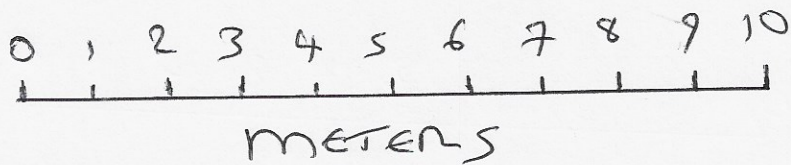 0 1 2 3 4 5 6 7 8 9 10
METERS